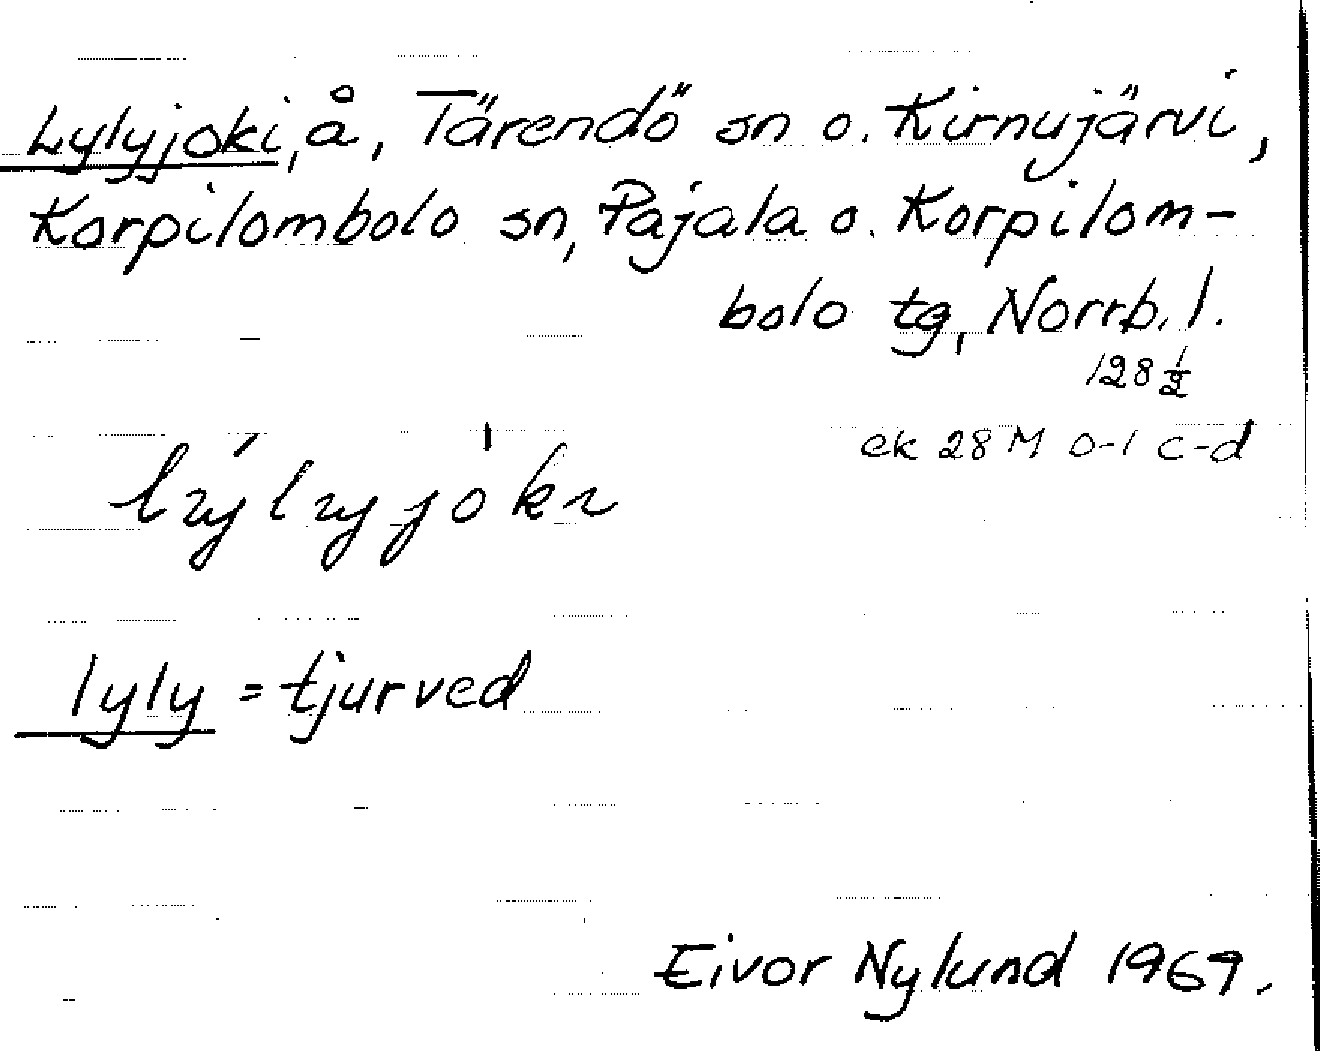 Lylyjoki, å, Tärendö sn o. Kirnujärvi,
Korpilombolo sn, Pajala o. Korpilom-
bolo tg, Norrb. l.
128 1/2
ek 28 M 0-1 c-d
lyly = tjurved
Eivor Nylund 1969.